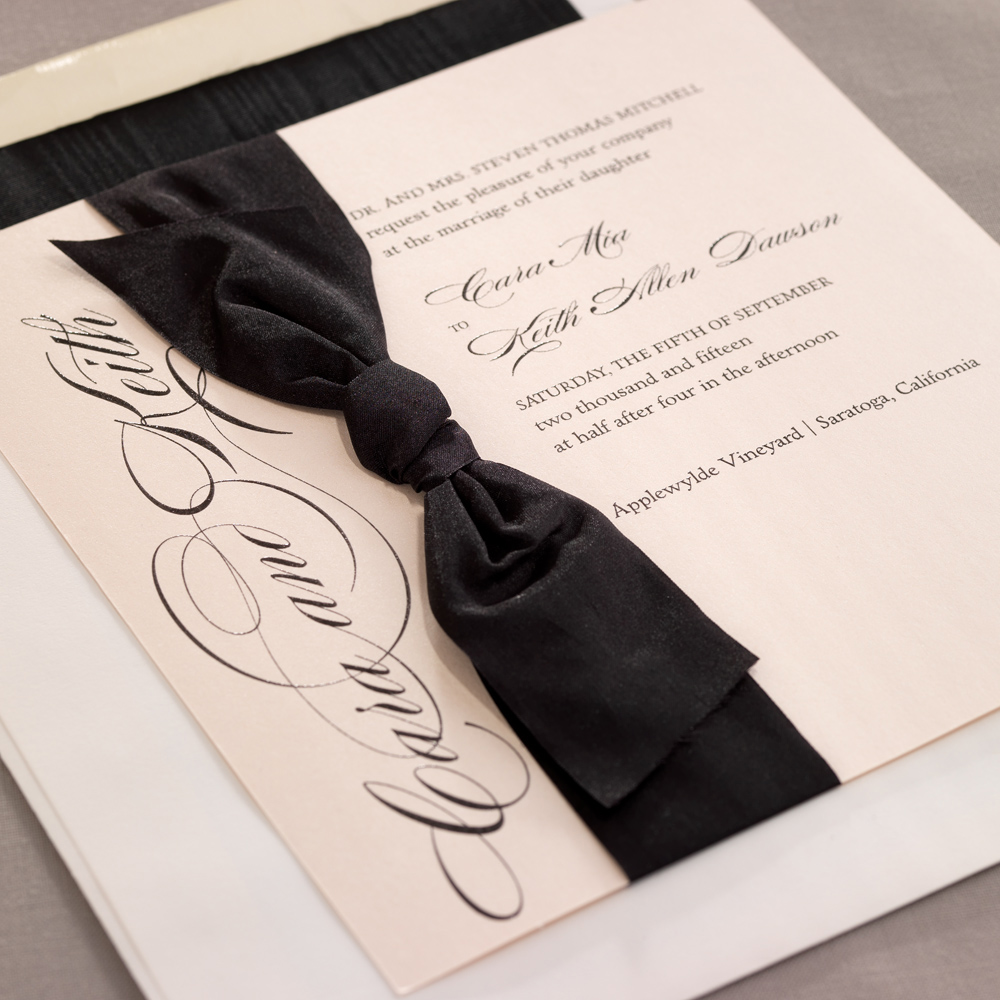 DR. AND MRS. STEVEN THOMAS MITCHELL
request the pleasure of your company
at the marriage of their daughter
Cara Mia
TO
Keith Allen Dawson
SATURDAY, THE FIFTH OF SEPTEMBER
two thousand and fifteen
at half after four in the afternoon
Applewylde Vineyard | Saratoga, California
Cara and Keith